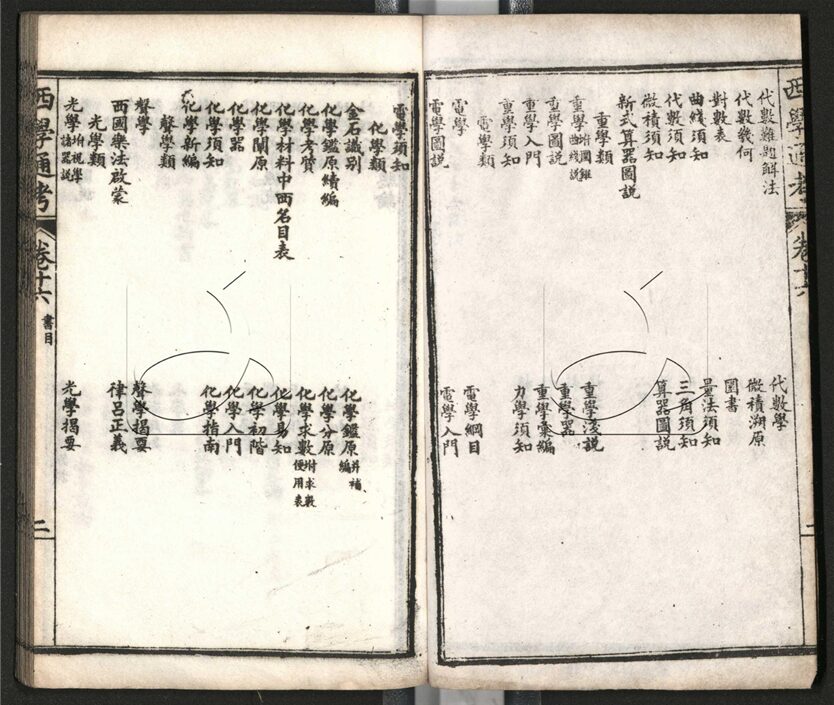 西學通考 卷十六
代數難題解法
代數學
代數幾何
微積溯原
對數表
圖書
曲綫須知
量法須知
代數須知
三角須知
微積須知
算器圖說
新式算器圖說
重學類
重學附圓錐曲綫說
重學淺說
重學圖說
重學器
重學入門
重學彙編
重學須知
力學須知
電學類
電學
電學綱目
電學圖說
電學入門
電學須知
化學類
金石識別
化學鑑原并補編
化學鑑原續編
化學分原
化學考質
化學求數附求數便用表
化學材料中西名目表
化學易知
化學闡原
化學初階
化學器
化學入門
化學須知
化學指南
化學新編
聲學類
聲學
聲學揭要
西國樂法啟蒙
律呂正義
光學類
光學坿視學諸器說
光學揭要
西學通考 卷十六 書目 二